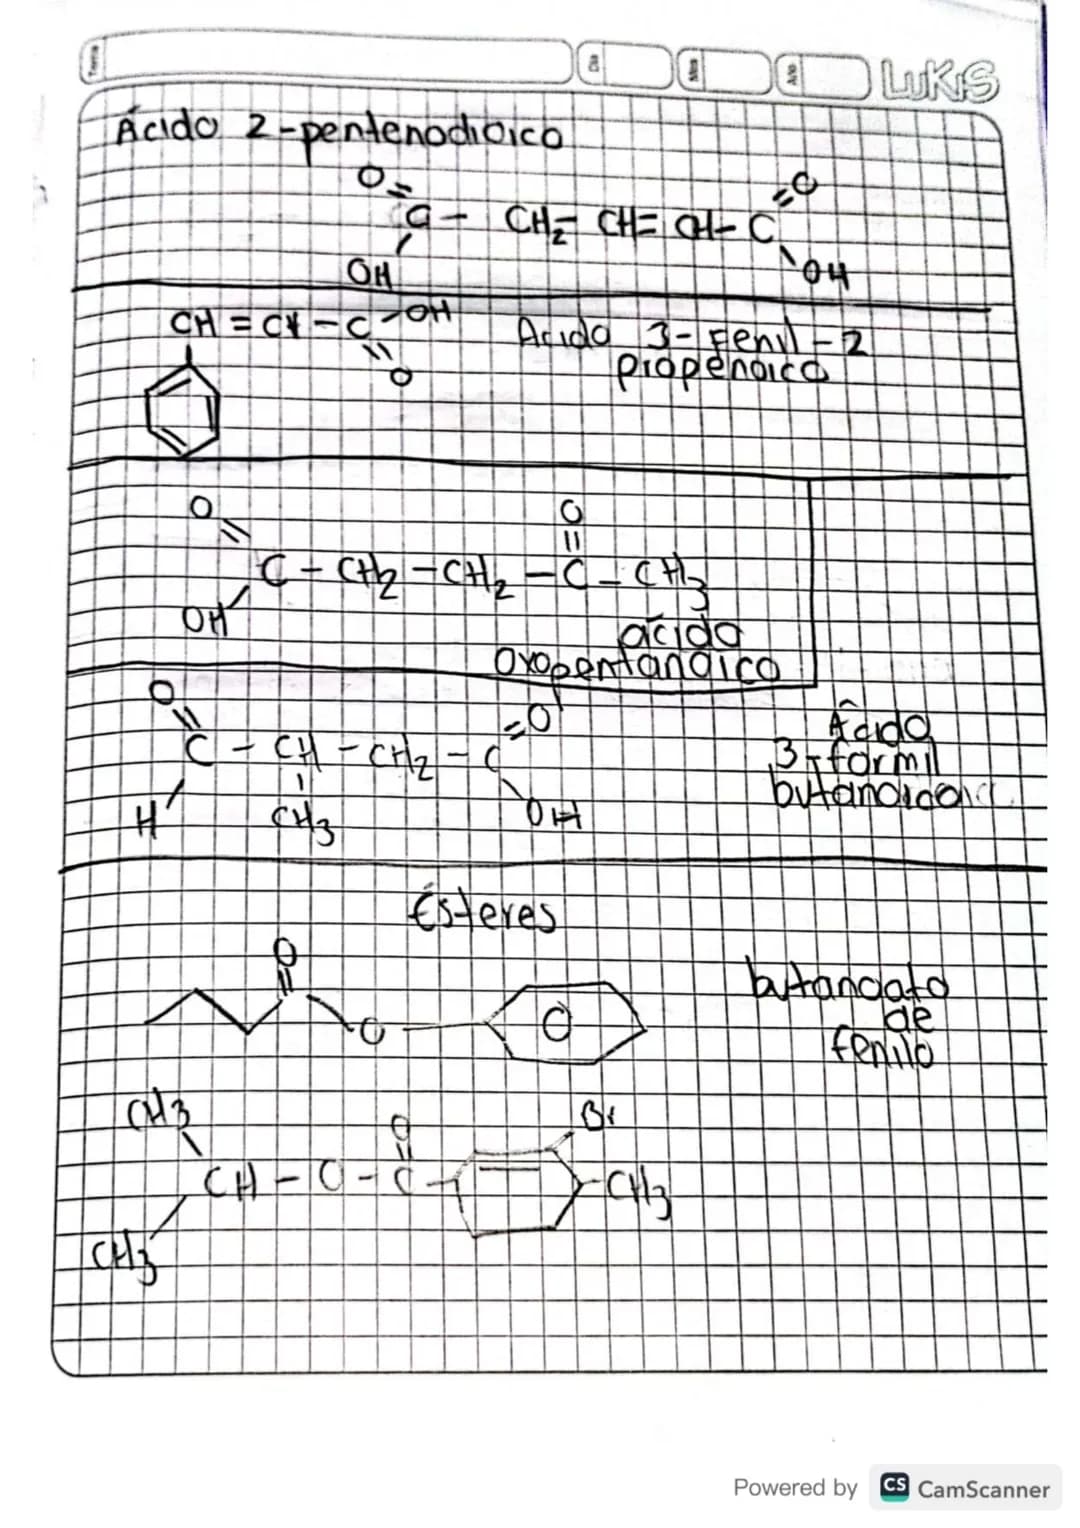 Tema
Día Mes Año LUKIS
Ácido 2-pentenodioico
O= =O
C - CH2- CH= CH- C
OH OH
CH = CH - C - OH
O
Acido 3-Fenil-2
propenoico
O O
C - CH2 - CH2 - C - CH3
OH
ácido
oxopentanoico
O =O
C - CH - CH2 - C
H CH3 OH
Ácido
3-formil
butanoico
Ésteres
O
O
butanoato
de
fenilo
CH3 O Br
CH - O - C - CH3
CH3
Powered by CS CamScanner